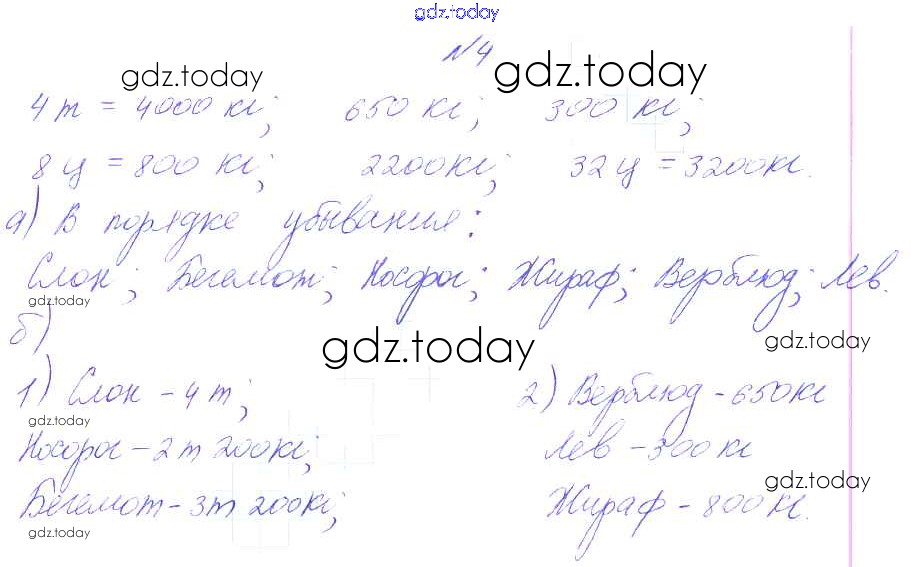 gdz.today
№4
gdz.today gdz.today
4 т = 4000 кг; 650 кг; 300 кг;
8 ц = 800 кг; 2200кг; 32 ц = 3200кг.
а) В порядке убывания:
Слон; Бегемот; Носорог; Жираф; Верблюд; Лев.
gdz.today
б)
gdz.today gdz.today
1) Слон – 4 т; 2) Верблюд – 650кг
gdz.today
Носорог – 2 т 200кг; Лев – 300 кг
gdz.today gdz.today
Бегемот – 3т 200кг; Жираф – 800 кг.
gdz.today